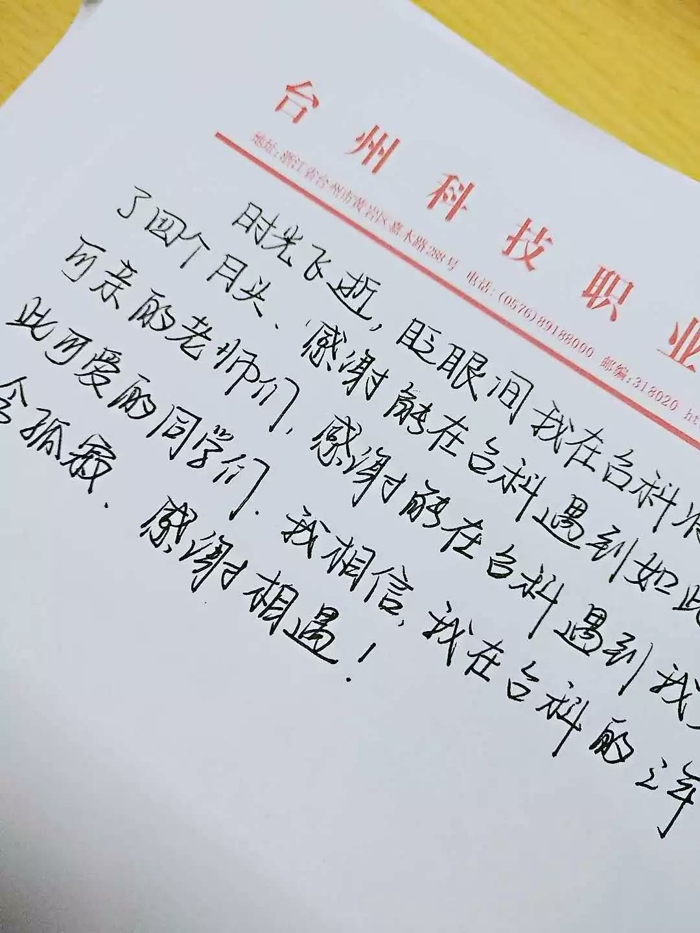 台州科技职业
地址:浙江省台州市黄岩区嘉木路288号 电话:(0576)89188000 邮编:318020 ht
时光飞逝,眨眼间我在台科
了四个月头、感谢能在台科遇到如此
可亲的老师们,感谢能在台科遇到我
此可爱的同学们.我相信,我在台科的三年
会孤寂、感谢相遇!